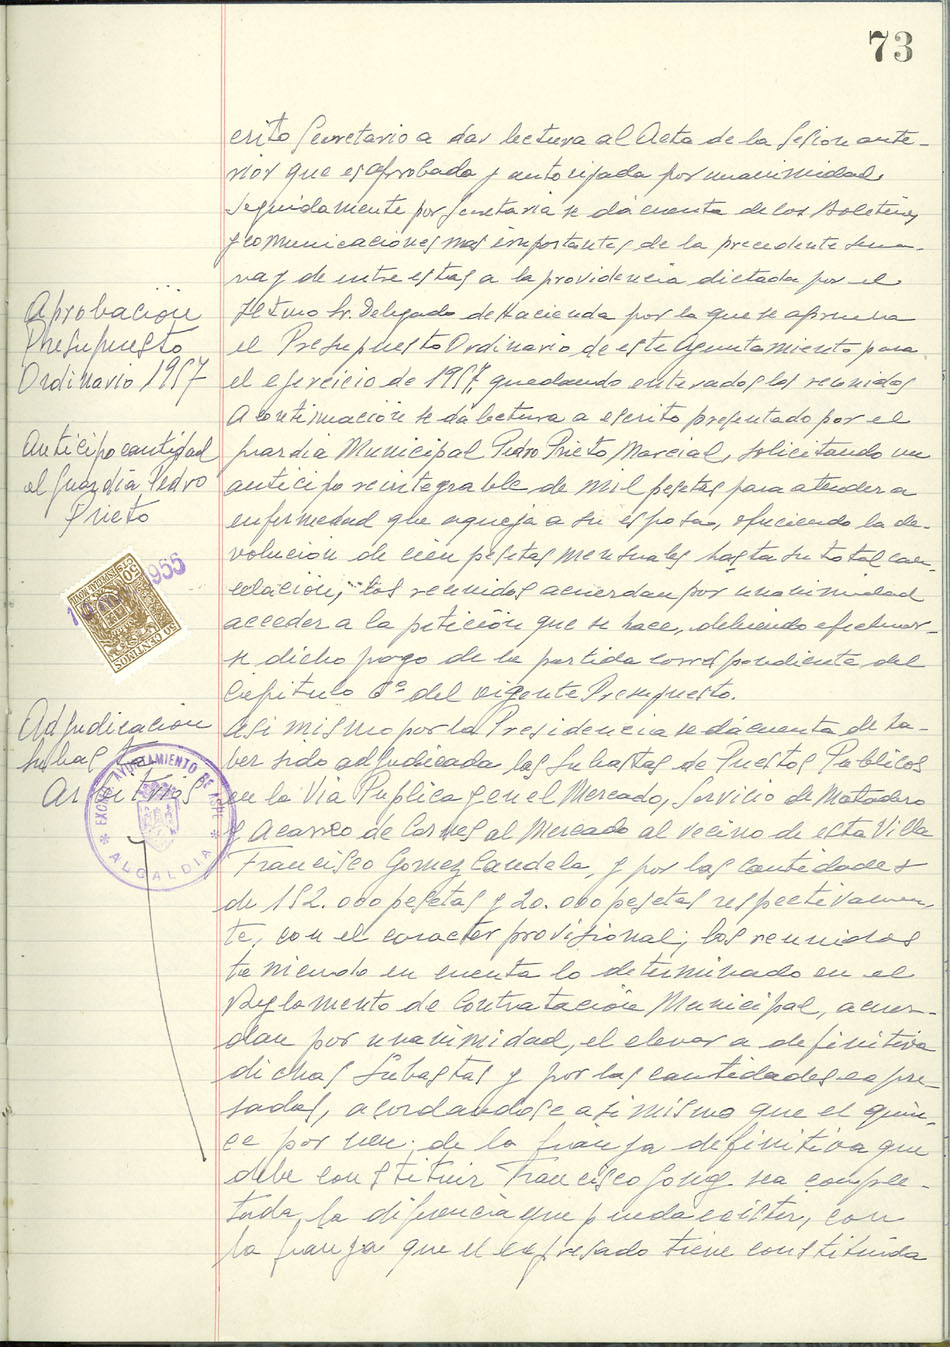 73
erito Secretario a dar lectura al Acta de la Sesion ante-
rior que es aprobada y autorizada por unanimidad.
Seguidamente por Secretaria se dá cuenta de los Boletines
y comunicaciones mas importantes de la precedente sema-
na y de entre estas a la providencia dictada por el
Iltmo Sr. Delegado de Hacienda por la que se aprueba
el Presupuesto Ordinario de este Ayuntamiento para
el ejercicio de 1957, quedando enterados los reunidos
A continuación se dá lectura a escrito presentado por el
guardia Municipal Pedro Prieto Marcial, solicitando un
anticipo reintegrable de mil pesetas para atender a
enfermedad que aqueja a su esposa, ofreciendo la de-
volución de cien pesetas mensuales hasta su total can-
celación; los reunidos acuerdan por unanimidad
acceder a la petición que se hace, debiendo efectuar-
se dicho pago de la partida correspondiente del
Capitulo 6º del vigente Presupuesto.
Asi mismo por la Presidencia se dá cuenta de ha-
ber sido adjudicada las Subastas de Puestos Publicos
en la Via Publica y en el Mercado, Servicio de Matadero
y Acarreo de Carnes al Mercado al vecino de esta Villa
Francisco Gomez Candela, y por las cantidades
de 152.000 pesetas y 20.000 pesetas respectivamen-
te, con el caracter provisional; los reunidos
teniendo en cuenta lo determinado en el
Reglamento de Contratación Municipal, acuer-
dan por unanimidad, el elevar a definitiva
dichas Subastas y por las cantidades expre-
sadas, acordandose asi mismo que el quin-
ce por cien de la fianza definitiva que
debe constituir Francisco Gomez sea comple-
tada la diferencia que pueda existir, con
la fianza que el expresado tiene constituida
Aprobación
Presupuesto
Ordinario 1957
Anticipo cantidad
al Guardia Pedro
Prieto
50 CTS ESPECIAL MOVIL
50 CENTIMOS
1955
Adjudicación
Subasta
Arbitrios
EXCMO. AYUNTAMIENTO DE ASPE
ALCALDIA